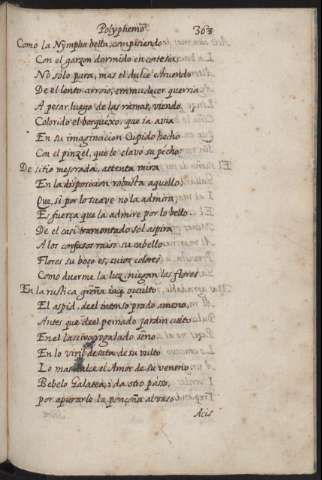 Polyphemo 303
Como la Nympha bella, compitiendo
Con el garzon dormido en cortesia
No solo para, mas el dulce estruendo
De el lento arroio, enmudecer querria
A pesar luego de las ramas, viendo
Colorido el borquixo, que ia avia
En su imaginacion Cupido hecho
Con el pinzel, que le clavo su pecho
De sitio mejorada, attenta mira
En la disposicion robusta aquello,
Que, si por lo suave no la admira,
Es fuerça que la admire por lo bello.
De el casi tramontado sol aspira
A los confusos raios su cabello
Flores su bozo es, cuios colores
Como duerme la luz, niegan las flores
En la rustica greña iace occulto
El aspid, de el intonso prado ameno,
Antes que de el peinado jardin culto
En el lascivo, regalado seno
En lo viril desata de su vulto
Lo mas dulce el Amor de su veneno
Bebelo Galatea, i da otro passo,
por apurarle la ponçoña al vaso
Acis